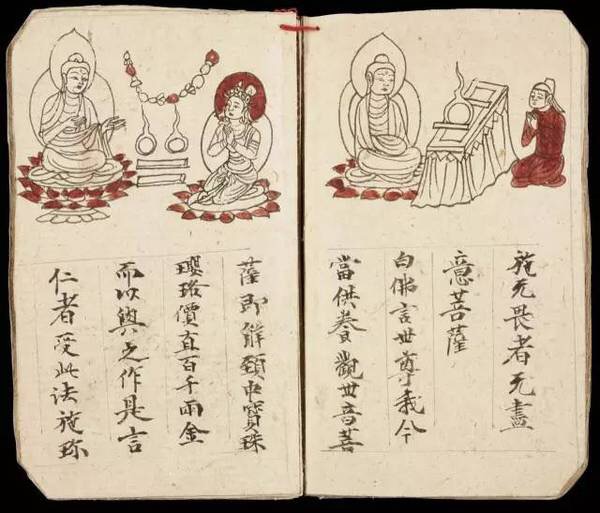 施无畏者无盡
意菩薩
白佛言世尊我今
當供養觀世音菩
薩即解頸中寶珠
瓔珞價直百千兩金
而以與之作是言
仁者受此法施珎